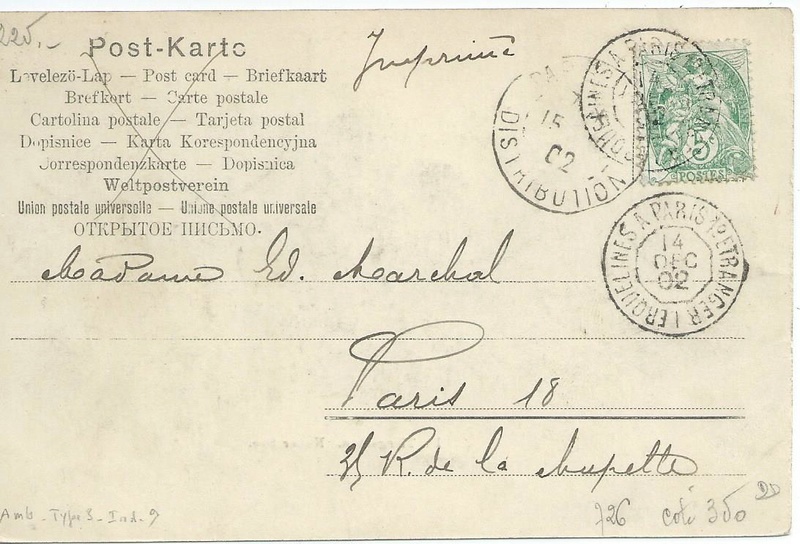 225.-
Post-Karte
Levelezö-Lap — Post card — Briefkaart
Brefkort — Carte postale
Cartolina postale — Tarjeta postal
Dopisnice — Karta Korespondencyjna
Correspondenzkarte — Dopisnica
Weltpostverein
Union postale universelle — Unione postale universale
ОТКРЫТОЕ ПИСЬМО.
Imprimé
PARIS
15
02
DISTRIBUTION
ERQUELINES A PARIS
5
POSTES
ERQUELINES A PARIS 1º ETRANGER
14
DEC
02
Madame Ed. Marchal
Paris 18
35 R. de la
Amb - Type 3 - Ind. 9
726 cote 350